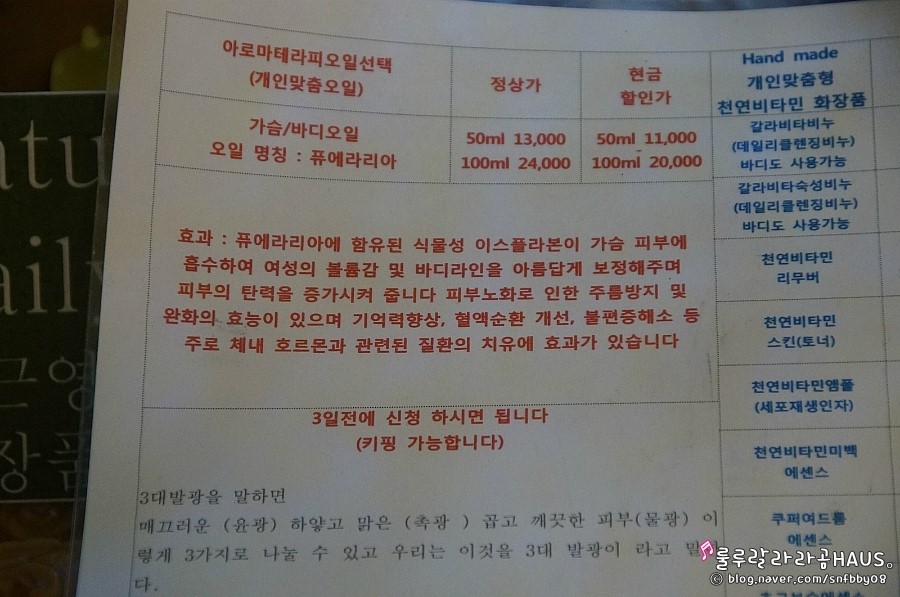 아로마테라피오일선택
(개인맞춤오일)
정상가
현금
할인가
가슴/바디오일
오일 명칭 : 퓨에라리아
50ml 13,000
100ml 24,000
50ml 11,000
100ml 20,000
효과 : 퓨에라리아에 함유된 식물성 이스플라본이 가슴 피부에
흡수하여 여성의 볼륨감 및 바디라인을 아름답게 보정해주며
피부의 탄력을 증가시켜 줍니다 피부노화로 인한 주름방지 및
완화의 효능이 있으며 기억력향상, 혈액순환 개선, 불편증해소 등
주로 체내 호르몬과 관련된 질환의 치유에 효과가 있습니다
3일전에 신청 하시면 됩니다
(키핑 가능합니다)
3대발광을 말하면
매끄러운 (윤광) 하얗고 맑은 (촉광 ) 곱고 깨끗한 피부(물광) 이
렇게 3가지로 나눌 수 있고 우리는 이것을 3대 발광이 라고 말
다.
Hand made
개인맞춤형
천연비타민 화장품
갈라비타비누
(데일리클렌징비누)
바디도 사용가능
갈라비타숙성비누
(데일리클렌징비누)
바디도 사용가능
천연비타민
리무버
천연비타민
스킨(토너)
천연비타민앰풀
(세포재생인자)
천연비타민미백
에센스
쿠퍼여드름
에센스
룰루랄라라곰HAUS。
© blog.naver.com/snfbby08